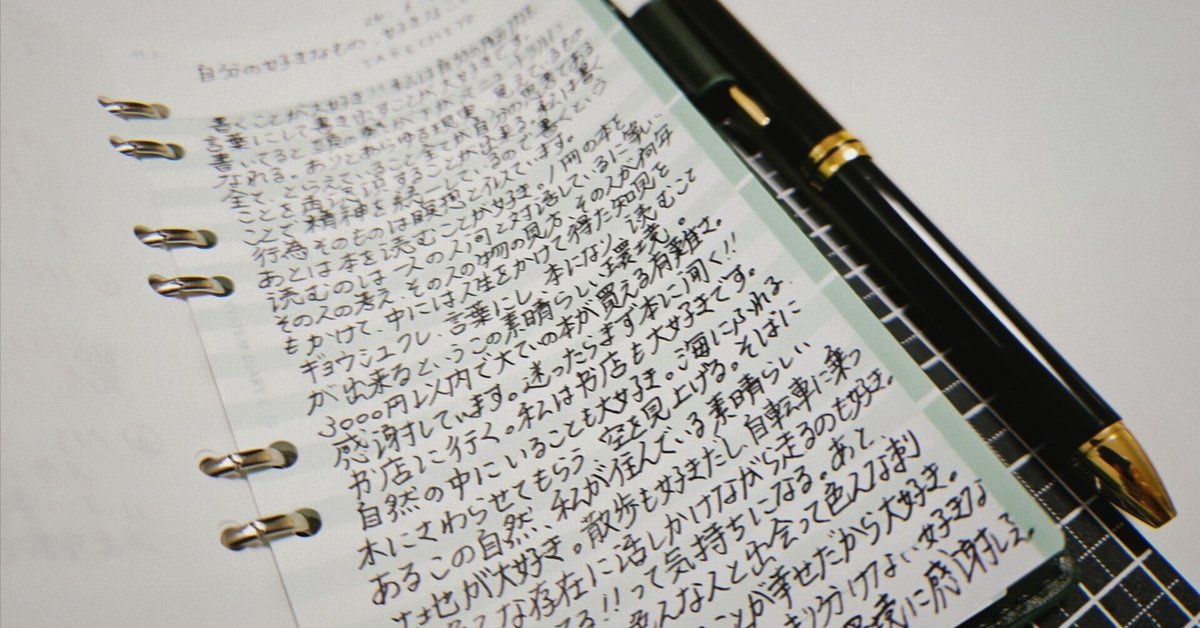 自分の好きなもの 好きなこ
書くことが大好き!!
言葉にして書き出すことが大好きです。
書いてると頭の
なれる。ありとあらゆる現実、見えているもの
全て、とらえていること全てが自分の
ことを再認識することが出来る。私は書く
ことで精神を統一しているので、書くという
行為そのものは瞑想と似ています。
あとは本を読むことが好き。1冊の本を
読むのは一人の人間と対話しているに等しい、
その人の考え、その人の物の見方、その人が何年
もかけて、中には人生をかけて得た知見を
ギョウシュクし、言葉にし、本になり、読むこと
が出来るという、この素晴らしい環境。
3000円以内で大ていの本が買える有難さ。
感謝しています。迷ったらまず本に聞く!!
書店に行く。私は書店も大好きです。
自然の中にいることも大好き。海にふれる、
木にさわらせてもらう、空を見上げる。そばに
あるこの自然、私が住んでいる素晴らしい
土地が大好き。散歩も好きだし、自転車に乗っ
な存在に話しかけながら走るのも好き。
てる!!って気持ちになる。あと、
色んな人と出会って色んな刺
ことが幸せだから大好き。
り分けない好きな
環境に感謝して。